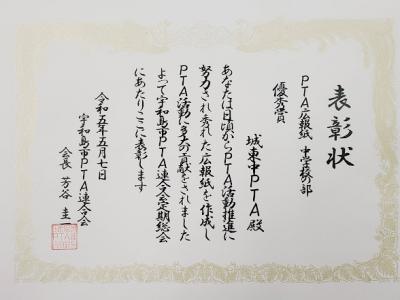 表彰状
PTA広報紙 中学校の部
優秀賞
城東中PTA殿
あなたは日頃からPTA活動推進に
努力され秀れた広報紙を作成し
PTA活動に多大の貢献をされました
よって宇和島市PTA連合会定期総会
にあたりここに表彰します
令和五年五月七日
宇和島市PTA連合会
会長 芳谷 圭一